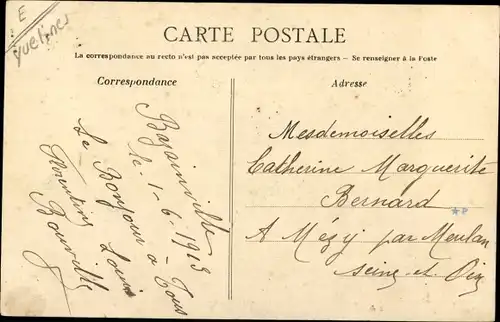 E
yvelines
CARTE POSTALE
La correspondance au recto n'est pas acceptée par tous les pays étrangers — Se renseigner à la Poste
Correspondance
Bazainville
le 1-6-1913
Le Bonjour à Tous
Louis
Florentine
Bouville
Adresse
Mesdemoiselles
Catherine Marguerite
Bernard
A Mézy par Meulan
Seine-et-Oise